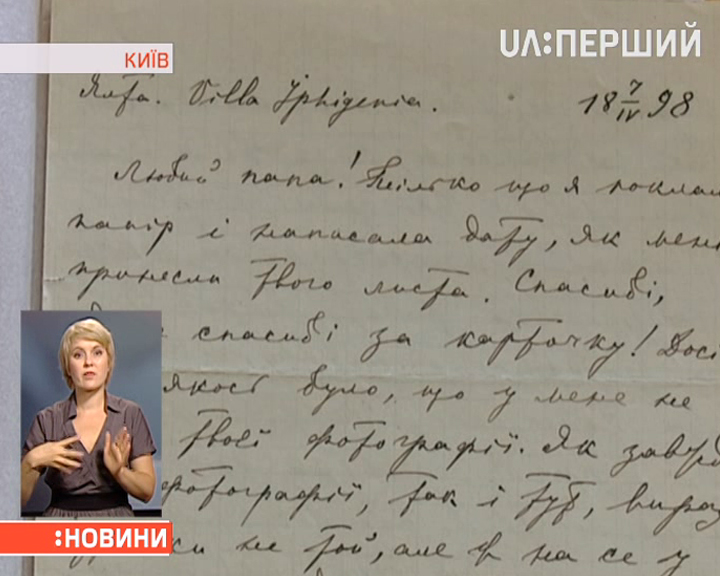 UA:ПЕРШИЙ
КИЇВ
Ялта. Villa Iphigenia. 18 7/IV 98
Любий папа! Тілько що я поклал
папір і написала дату, як мені
принесли твого листа. Спасибі,
спасибі за карточку! Досі
якось було, що у мене не
твоєї фотографії. Як завжд
фотографії, так і тут, вираз
не той, але в на се у
:НОВИНИ